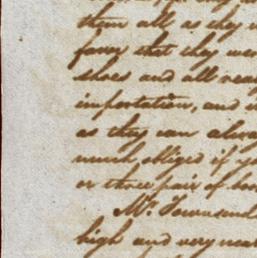 them all as they
that they wer
shoes and all
importation, and
as they can alwa
much obliged if y
or three pair of
Mr. Townsend
high and very near